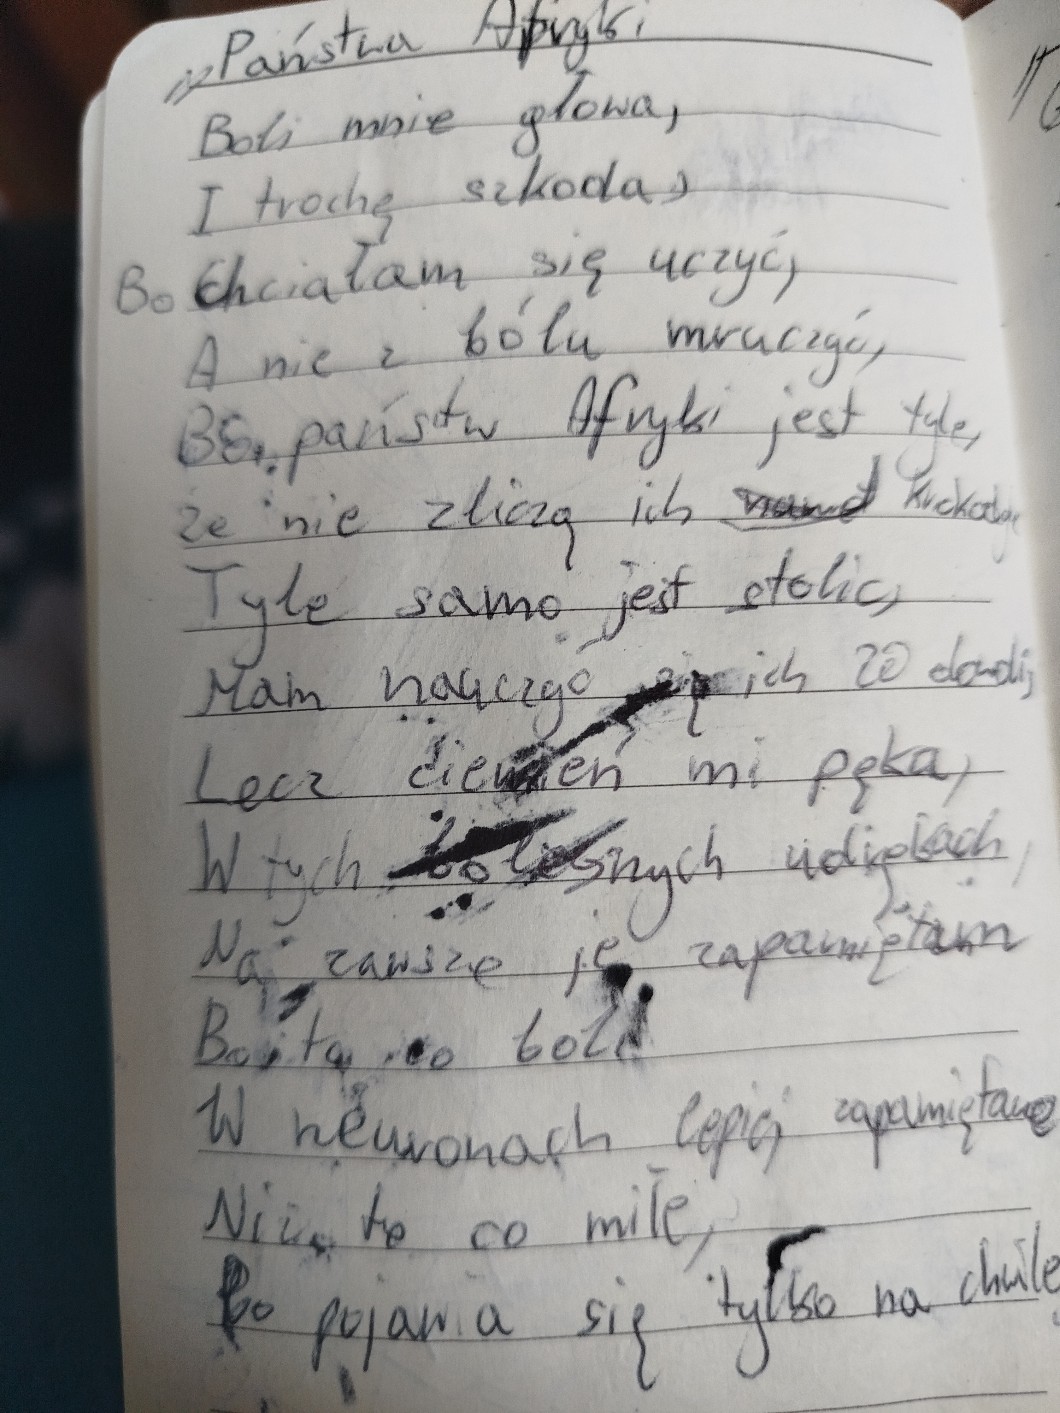 „Państwa Afryki
Boli mnie głowa,
I trochę szkoda,
Bo chciałam się uczyć,
A nie z bólu mruczyć,
Bo państw Afryki jest tyle,
że nie zliczą ich krokodyle
Tyle samo jest stolic,
Mam nauczyć się ich 20
Lecz mi pęka,
W tych bolesnych udrękach,
Na zawsze je zapamiętam
Bo to co boli
W neuronach lepiej zapamiętane
Niż to co miłe,
Bo pojawia się tylko na chwilę,